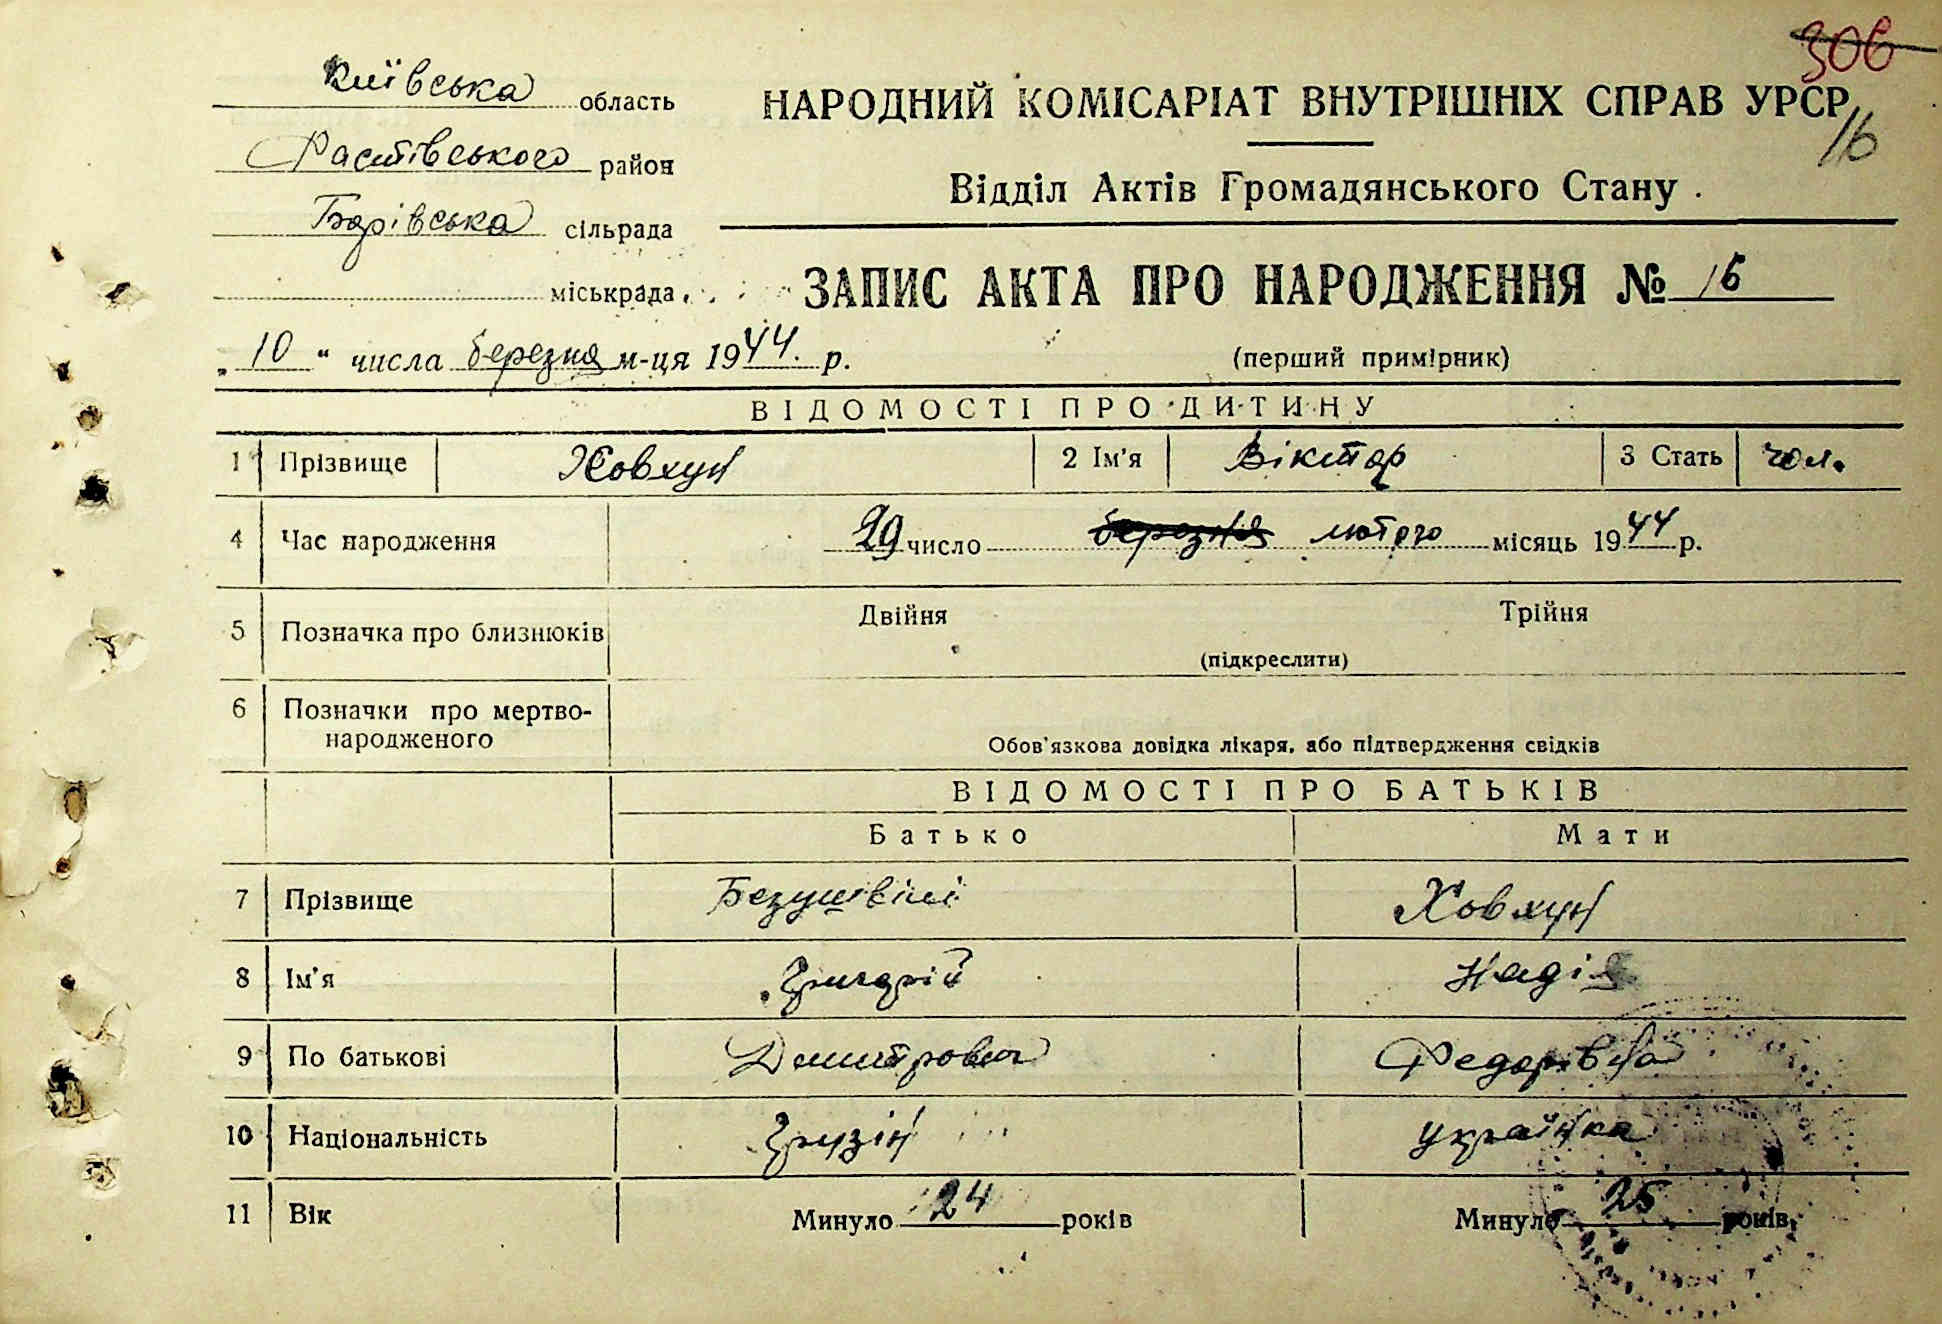 306
Київська область
Фастівського район
Борівська сільрада
міськрада
НАРОДНИЙ КОМІСАРІАТ ВНУТРІШНІХ СПРАВ УРСР
16
Відділ Актів Громадянського Стану
ЗАПИС АКТА ПРО НАРОДЖЕННЯ № 16
„10“ числа березня м-ця 1944. р.
(перший примірник)
ВІДОМОСТІ ПРО ДИТИНУ
1 Прізвище Ховхун 2 Ім'я Віктор 3 Стать чол.
4 Час народження 29 число березня лютого місяць 1944 р.
5 Позначка про близнюків Двійня Трійня
(підкреслити)
6 Позначки про мертво-
народженого
Обов'язкова довідка лікаря, або підтвердження свідків
ВІДОМОСТІ ПРО БАТЬКІВ
Батько Мати
7 Прізвище Ховхун
8 Ім'я Григорій Надія
9 По батькові Дмитрович Федорівна
10 Національність Грузін українка
11 Вік Минуло 24 років Минуло 25 років